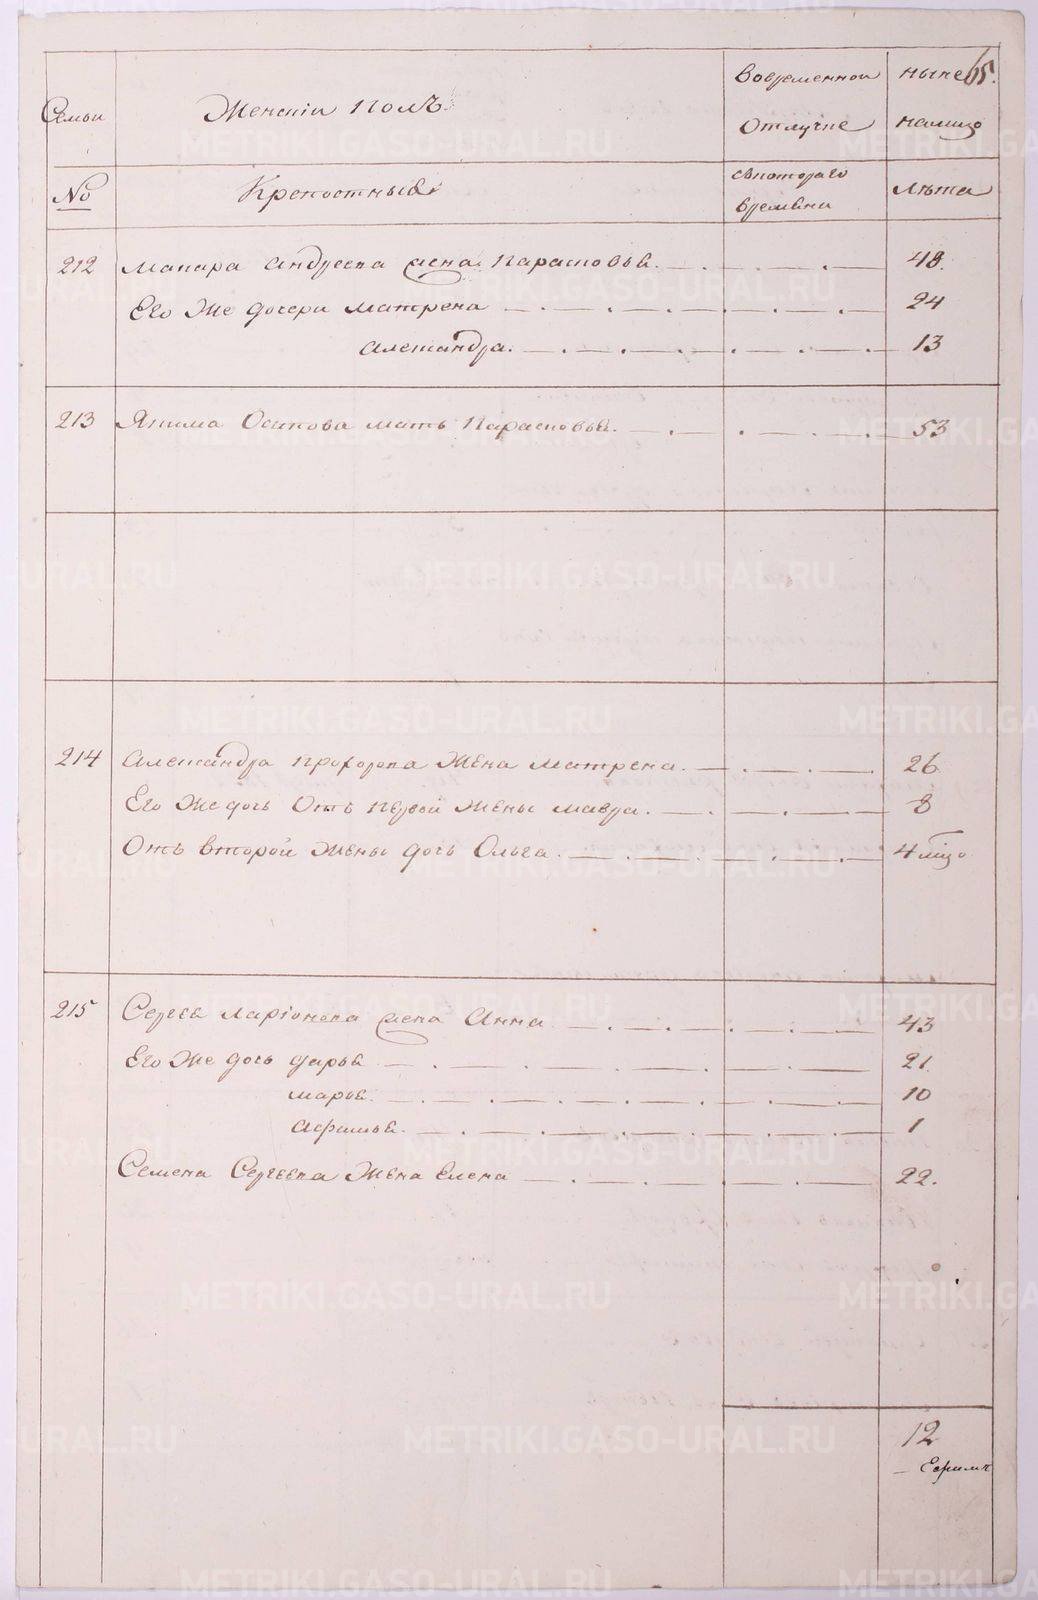 Семьи
Женскiи полъ
Вовременной
Отлучке
ныне
налицо
65.
No
Крепостные
Скоторого
времени
Лета
212 Макара Андреева жена Парасковья. 48.
Его же дочери Матрена 24
Александра. 13
213 Якима Осипова мать Парасковья. 53
214 Александра Прохорова жена Матрена. 26
Его же дочь Отъ первой жены Мавра. 8
Отъ второй жены дочь Ольга. 4
215 Сергея Ларiонова жена Анна 43
Его же дочь Дарья 21.
Марья. 10
Афимья. 1
Семена Сергеева жена Елена 22.
12
METRIKI.GASO-URAL.RU